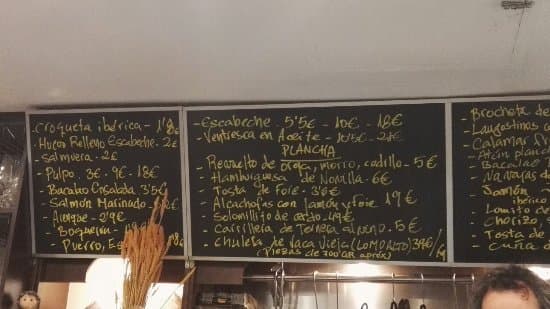 -Croqueta ibérica - 1'8€
-Huevo Relleno Escabeche - 2€
-Salmuera - 2€
-Pulpo - 3€ - 9€ - 18€
-Bacalao Ensalada 3'5€
-Salmón Marinado
-Boquerón
-Puerro,
-Escabeche - 5'5€ - 10€ - 18€
-Ventresca en Aceite -
PLANCHA
-Revuelto de oreja, morro, codillo - 5€
-Hamburguesa de Novilla - 6€
-Tosta de Foie - 3'8€
-Alcachofas con Jamón y foie 19€
-Solomillito de cerdo
-Carrillera de Ternera - 5€
-Chuleta de vaca vieja (LOMO ALTO)
(Piezas de 700 GR aprox)
-Brocheta de
-Langostinos
-Calamar
-Bacalao
-Navajas
-Jamón
ibérico
-Lomito de
-Chorizo
-Tosta de